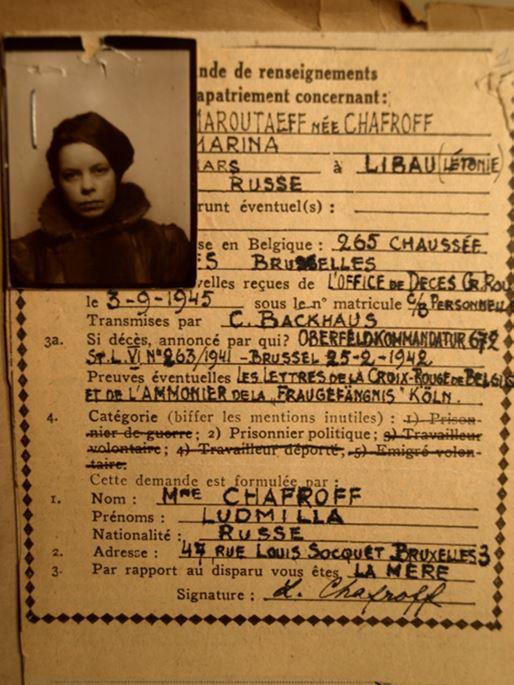 nde de renseignements
apatriement concernant:
MAROUTAEFF NÉE CHAFROFF
MARINA
MARS à LIBAU (LÉTONIE)
RUSSE
runt éventuel(s) :
se en Belgique : 265 CHAUSSÉE
BRUXELLES
velles reçues de L'OFFICE DE DECES GR. ROU
le 3-9-1945 sous le nº matricule C/B PERSONNELL
Transmises par C. BACKHAUS
3a. Si décès, annoncé par qui? OBERFELDKOMMANDATUR 672
ST. L. VI Nº 263/1941 - BRUSSEL 25-2-1942
Preuves éventuelles LES LETTRES DE LA CROIX-ROUGE DE BELGI
ET DE L'AMMONIER DE LA "FRAUGEFÄNGNIS" KÖLN.
4. Catégorie (biffer les mentions inutiles) : 1) Prison-
nier de guerre ; 2) Prisonnier politique ; 3) Travailleur
volontaire ; 4) Travailleur déporté, 5) Emigré volon-
taire.
Cette demande est formulée par :
1. Nom : MME CHAFROFF
Prénoms : LUDMILLA
Nationalité : RUSSE
2. Adresse : 47 RUE LOUIS SOCQUET BRUXELLES 3
3. Par rapport au disparu vous êtes LA MÈRE
Signature : L. Chafroff